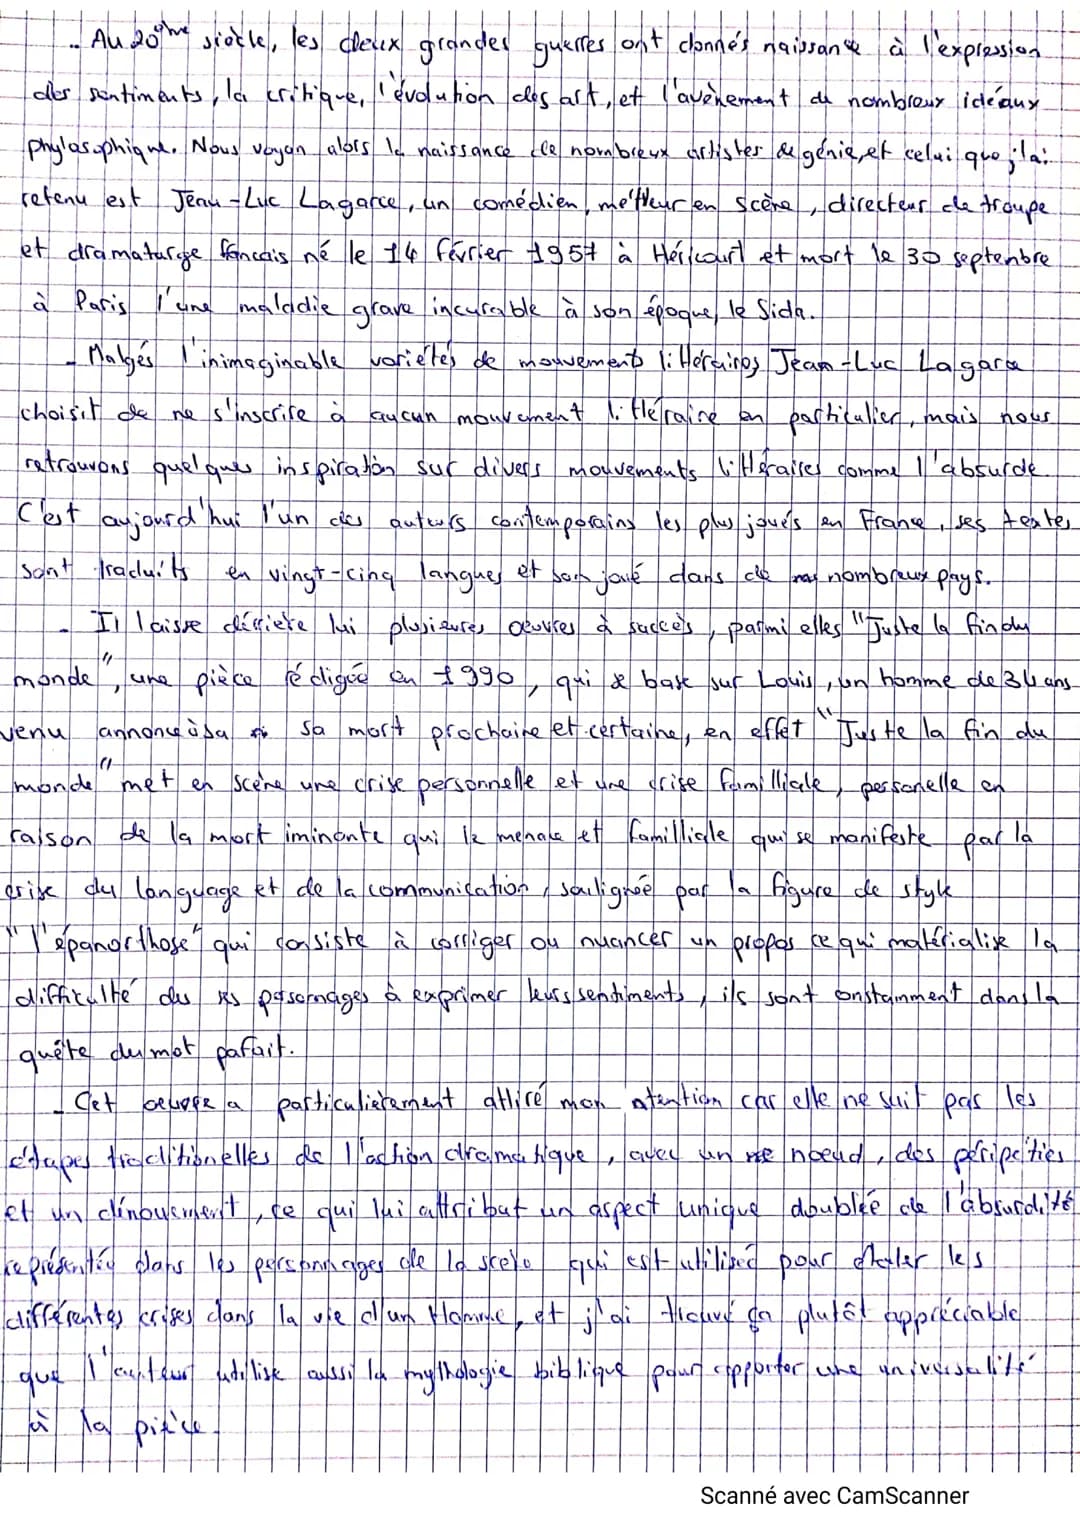 - Au 20ème siècle, les deux grandes guerres ont donnés naissance à l'expression
des sentiments, la critique, l'évolution des art, et l'avènement de nombreux idéaux
phylosophique. Nous voyon alors la naissance de nombreux artistes de génie, et celui que j'ai
retenu est Jean-Luc Lagarce, un comédien, metteur en scène, directeur de troupe
et dramaturge francais né le 14 février 1957 à Héricourt et mort le 30 septembre
à Paris d'une maladie grave incurable à son époque, le Sida.
- Malgés l'inimaginable variétés de mouvements littéraires Jean-Luc Lagarce
choisit de ne s'inscrire à aucun mouvement littéraire en particulier, mais nous
retrouvons quelques inspiration sur divers mouvements littéraires comme l'absurde.
C'est aujourd'hui l'un des auteurs contemporains les plus joués en France, ses textes
sont traduits en vingt-cinq langues et son joué dans de nombreux pays.
- Il laisse dérriere lui plusieures œuvres à succès, parmi elles "Juste la fin du
monde", une pièce rédigée en 1990, qui se base sur Louis, un homme de 34 ans
venu annonce à sa sa mort prochaine et certaine, en effet "Juste la fin du
monde" met en scène une crise personnelle et une crise familliale, personelle en
raison de la mort iminante qui le menace et familliale qui se manifeste par la
crise du language et de la communication, soulignée par la figure de style
"l'épanorthose" qui consiste à corriger ou nuancer un propos ce qui matérialise la
difficulté des personnages à exprimer leurs sentiments, ils sont constamment dans la
quête du mot parfait.
- Cet oeuvre a particulièrement attiré mon atention car elle ne suit pas les
étapes traditionelles de l'action dramatique, avec un noeud, des péripéties
et un dénouement, ce qui lui attribut un aspect unique doublée de l'absurdité
représentée dans les personnages de la scène qui est utilisée pour étaler les
différentes crises dans la vie d'un Homme, et j'ai trouvé ça plutôt appréciable
que l'auteur utilise aussi la mythologie biblique pour apporter une universalité
à la pièce.
Scanné avec CamScanner